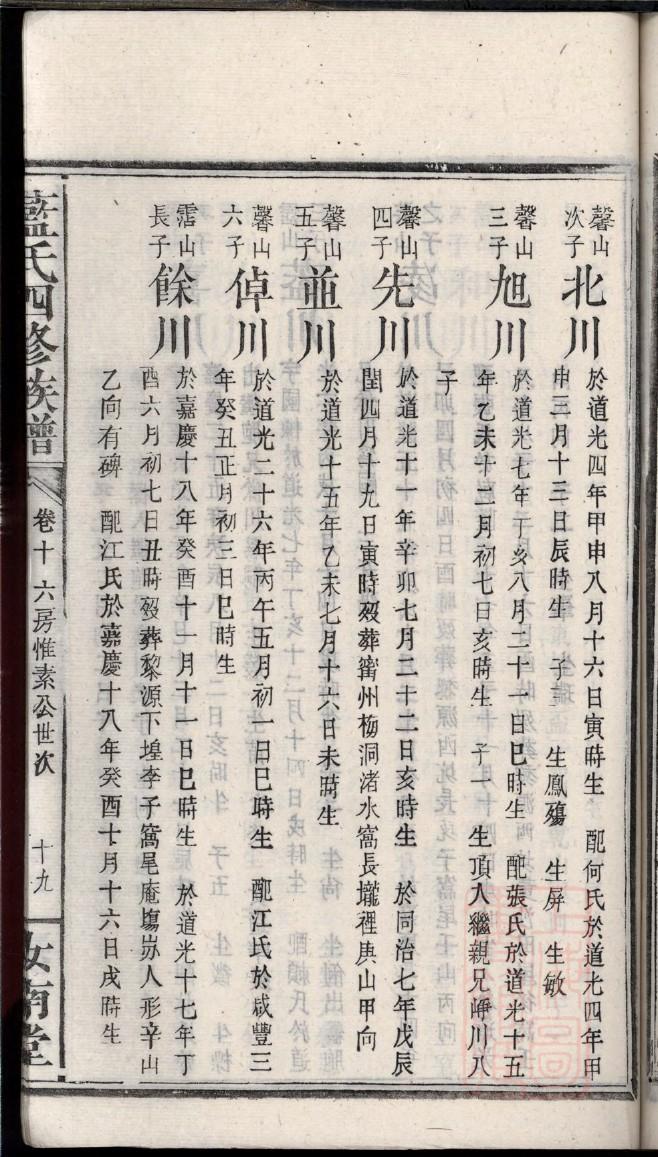 馨山次子
北川
於道光四年甲申八月十六日寅時生 配何氏於道光四年甲
申三月十三日辰時生 子三 生鳳殤 生屏 生敏
馨山三子
旭川
於道光七年丁亥八月二十一日巳時生 配張氏於道光十五
年乙未十二月初七日亥時生 子一 生頂入繼親兄崢川八
子
馨山四子
先川
於道光十一年辛卯七月二十二日亥時生 於同治七年戊辰
閏四月十九日寅時歿葬甯州楊洞渚水窩長壠裡庚山甲向
馨山五子
並川
於道光十五年乙未七月十六日未時生
馨山六子
倬川
於道光二十六年丙午五月初一日巳時生 配江氏於咸豐三
年癸丑正月初三日巳時生
霑山長子
餘川
於嘉慶十八年癸酉十一月十一日巳時生 於道光十七年丁
酉六月初七日丑時歿葬黎源下堭李子窩尾庵塲岃人形辛山
乙向有碑 配江氏於嘉慶十八年癸酉七月十六日戌時生
藍氏四修族譜
卷十六房惟素公世次
十九
汝南堂